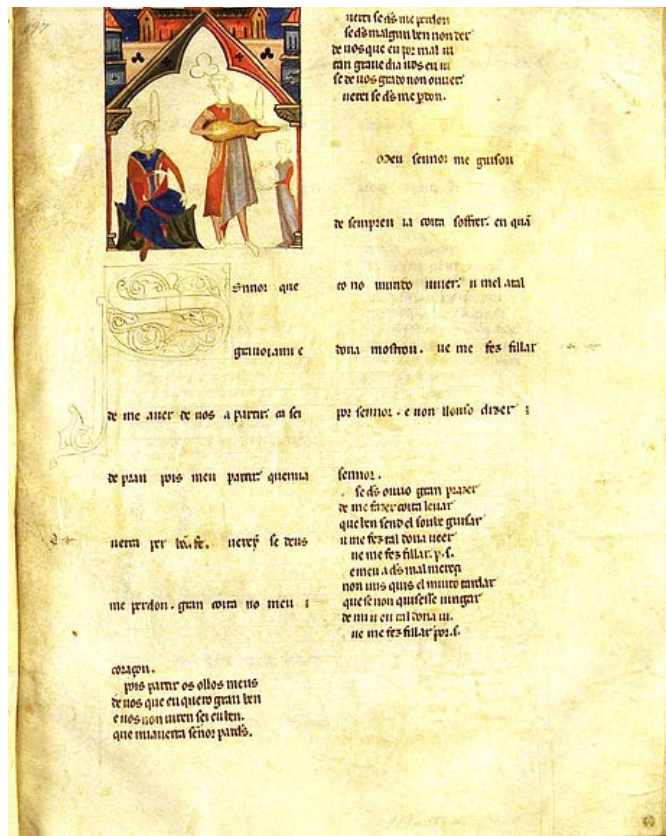 ennor que
gran oi ami e
de me auer de uos a partir. ca sei
de pran pois meu partir quemia
uerra per boa fe. uerey se deus
me perdon. gran coita no meu
coraçon.
pois partir os ollos meus
de uos que eu quero gran ben
e uos non uiren sei eu ben.
que miauerra señor par ds.
uerei se ds me perdon
se ds malgun ben non der
de uos que eu por mal ui
tan graue dia uos eu ui
se de uos grado non ouuer
uerei se ds me pdon.
Deu sennor me guisou
de sempreu ia coita soffrer. en quã
to no mundo uiuer. u mel atal
dona mostrou. ue me fez fillar
por sennor. e non llouso dizer
sennor.
se ds ouuo gran prazer
de me fazer coita leuar
que ben send el soube guisar
u me fez tal dona ueer
ue me fez fillar. p. s.
e meu a ds mal mereçi
non uus quis el muito tardar
que se non quisesse uingar
de mi u eu tal dona ui.
ue me fez fillar por. s.